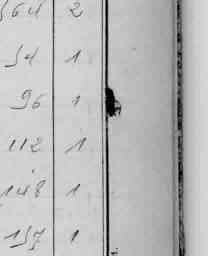 564 2
54 1
96 1
112 1
148 1
157 1